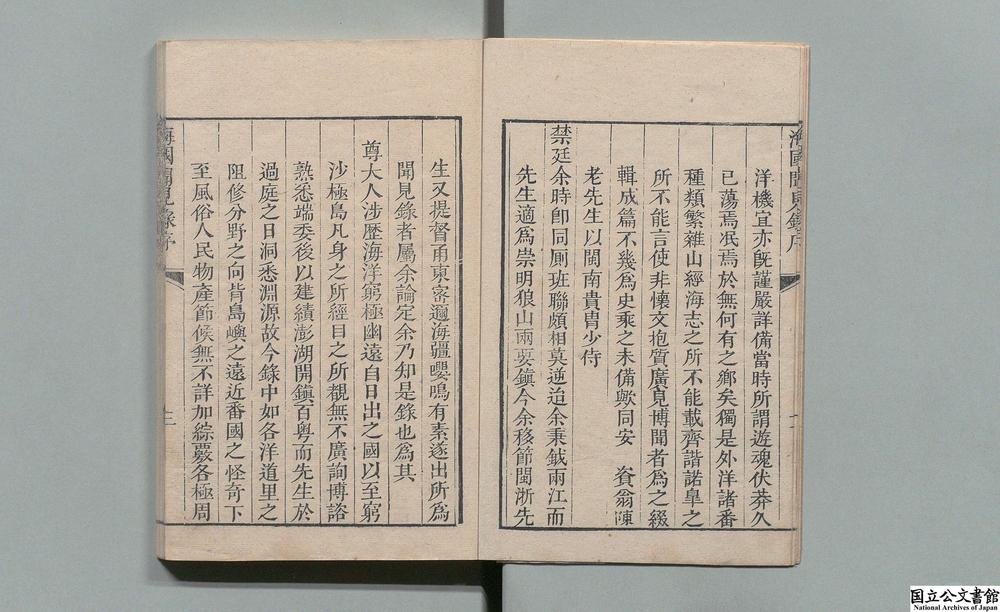 海國聞見錄序
洋機宜亦旣謹嚴詳備當時所謂遊魂伏莽久
已蕩焉泯焉於無何有之鄉矣獨是外洋諸番
種類繁雜山經海志之所不能載齊諧諾皇之
所不能言使非懷文抱質廣見博聞者爲之綴
輯成篇不幾爲史乘之未備歟同安 資翁陳
老先生以閩南貴胄少侍
禁廷余時卽同厠班聯頗相莫逆迨余秉鉞兩江而
先生適爲崇明狼山兩要鎭今余移節閩浙先
生又提督甬東密邇海疆嚶鳴有素遂出所爲
聞見錄者屬余論定余乃知是錄也爲其
尊大人涉歷海洋窮極幽遠自日出之國以至窮
沙極島凡身之所經目之所覩無不廣詢博諮
熟悉端委後以建績澎湖開鎭百粤而先生於
過庭之日洞悉淵源故今錄中如各洋道里之
阻修分野之向背島嶼之遠近番國之怪奇下
至風俗人民物產節候無不詳加綜覈各極周
海國聞見錄序
三
国立公文書館
National Archives of Japan